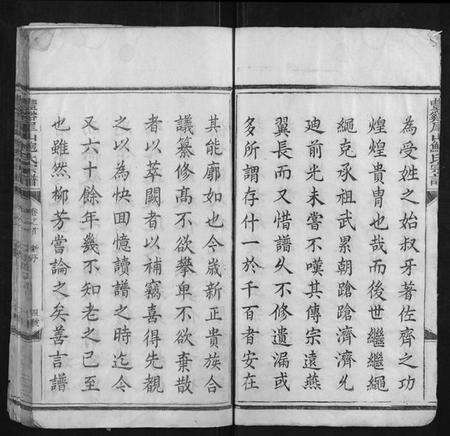 為受姓之始叔牙著佐齊之功
煌煌貴冑也哉而後世繼繼繩
繩克承祖武累朝蹌蹌濟濟允
廸前光未嘗不嘆其傳宗遠燕
翼長而又惜譜久不修遺漏或
多所謂存什一於千百者安在
其能廓如也今歲新正貴族合
議纂修高不欲攀卑不欲棄散
者以萃闕者以補竊喜得先覩
之以為快回憶讀譜之時迄今
又六十餘年幾不知老之已至
也雖然柳芳嘗論之矣善言譜